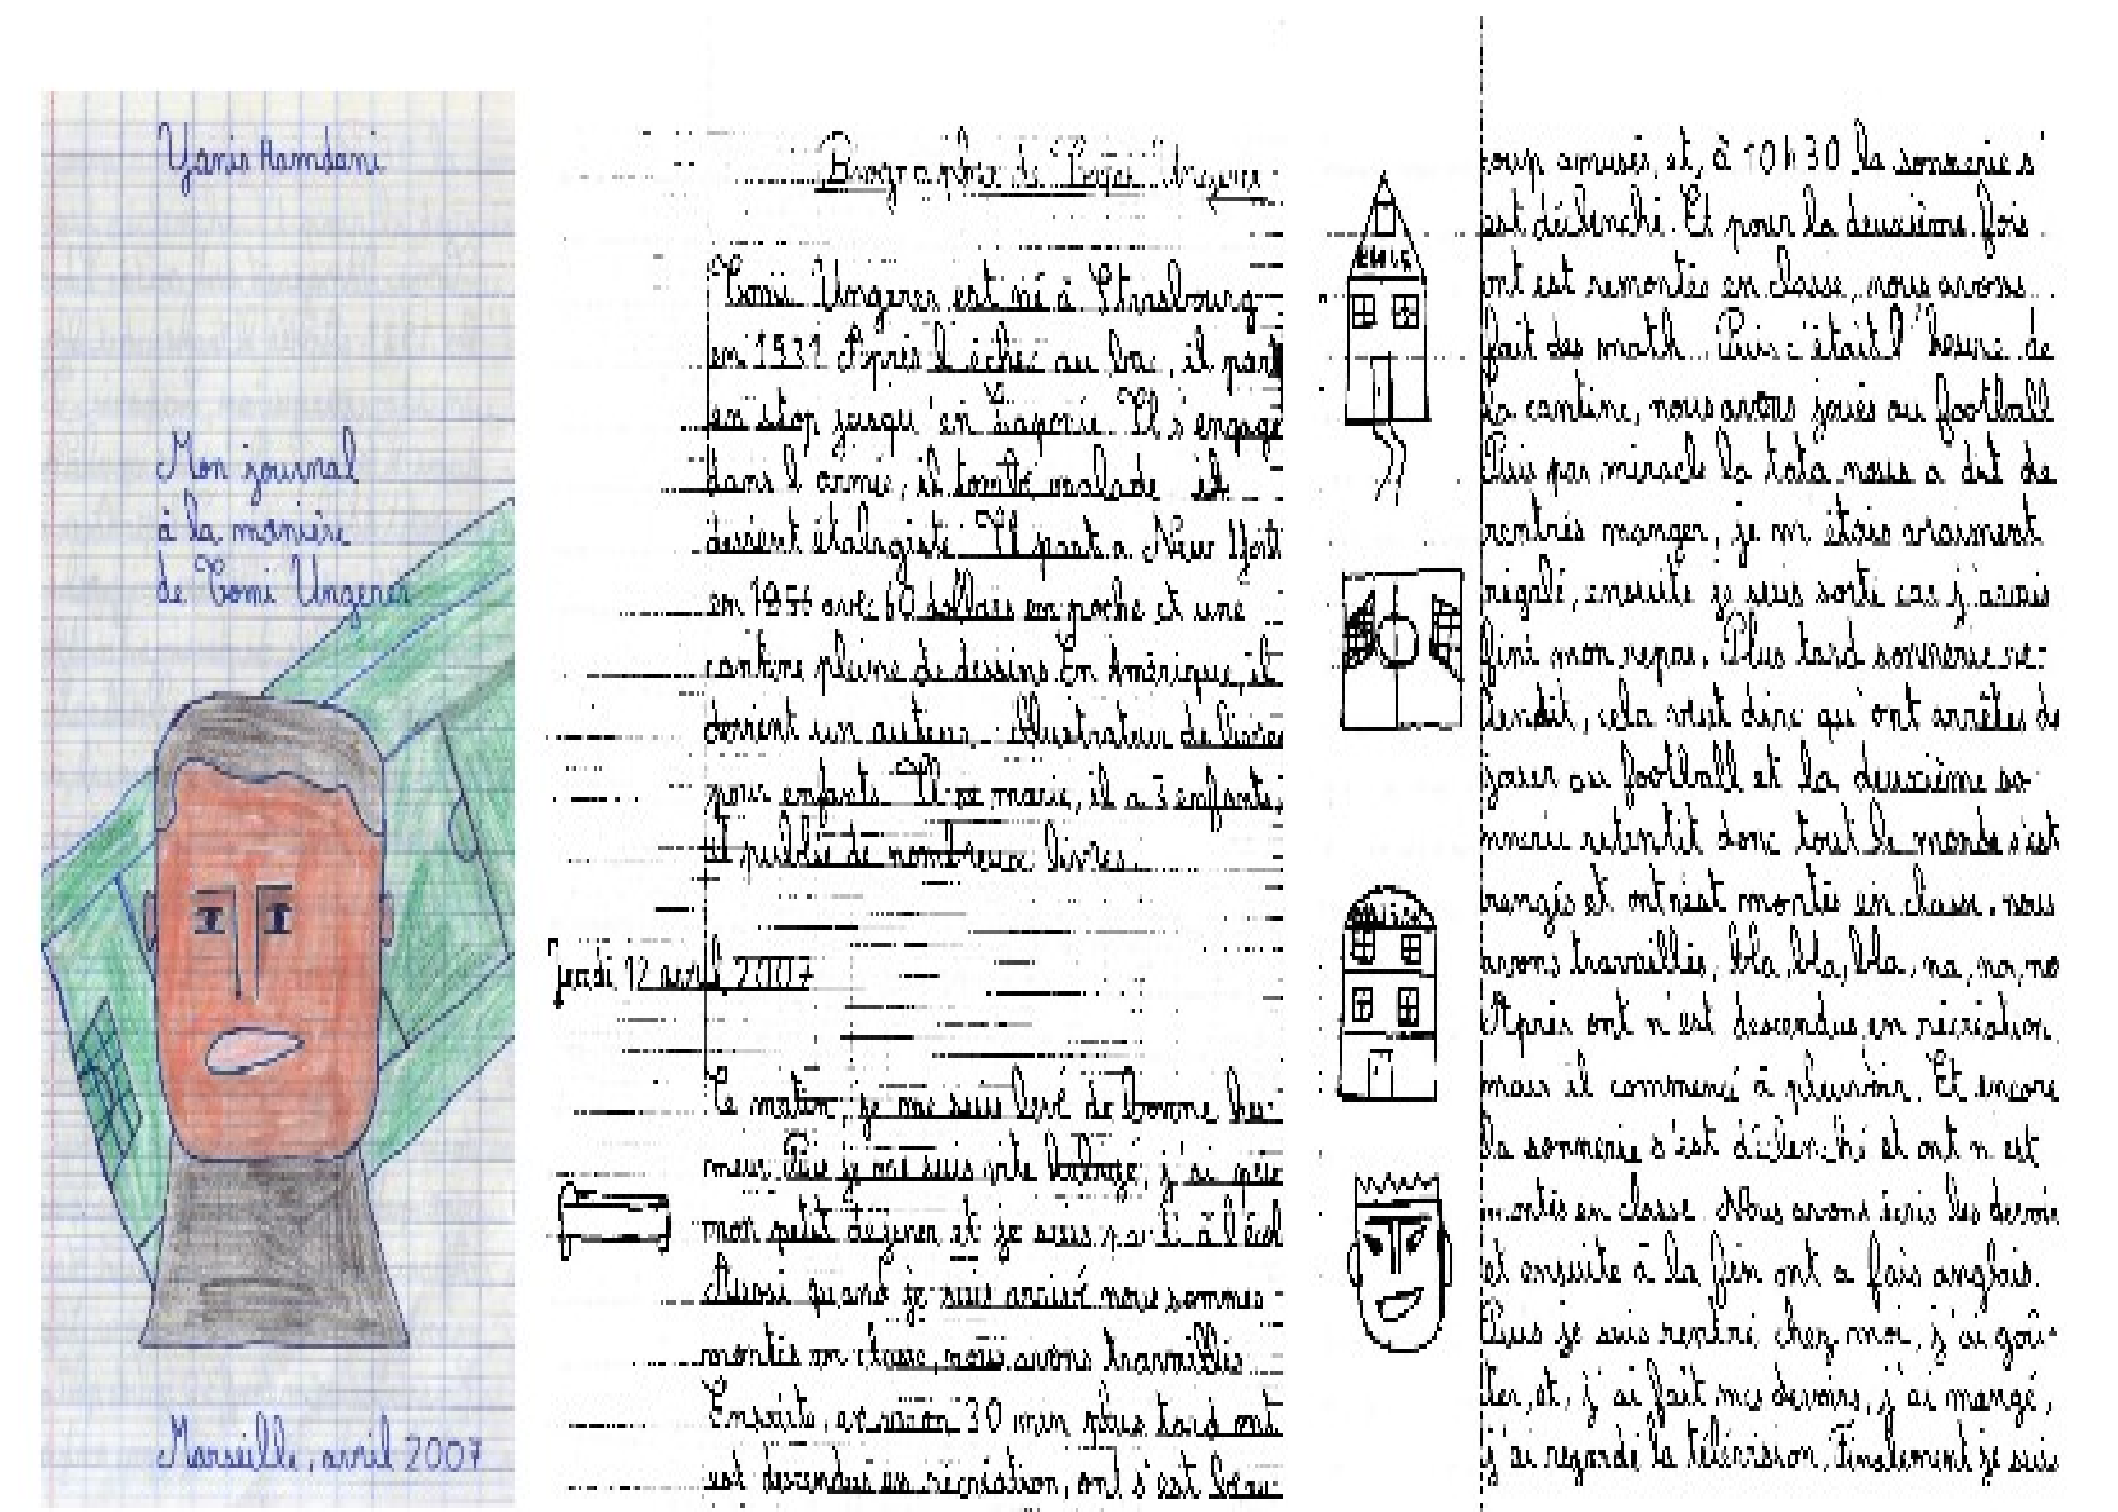 Yanis Hamdani
Mon journal
à la manière
de Tomi Ungerer
Marseille, avril 2007
Biographie de Ungerer
Tomi Ungerer est né à Strasbourg
en 1931 Après l'échec au bac, il part
en stop jusqu'en Laponie Il s'engage
dans l'armée, il tombe malade et
devient étalagiste Il part a New York
en 1956 avec 60 dollars en poche et une
cantine pleine de dessins En Amérique, il
devient un auteur illustrateur de livres
pour enfants Il se marie, il a 3 enffants,
il publie de nombreux livres.
Jeudi 12 avril 2007
Ce matin, je me suis levé de bonne hu-
meur Puis je me suis j'ai pris
mon petit dejener et je suis parti à l'écol
Aussi quand je suis arrivé nous sommes
montés en classe, nous avons travaillés
Ensuite, 30 min plus tard ont
est descendus en récréation, ont s'est beau-
coup amusés, et, à 10h30 la sonnerie s'
est déclenché. Et pour la deuxième fois
ont est remontés en classe, nous avons
fait des math. Puis c'était l'heure de
la cantine, nous avons joués au football
Puis par miracle la tata nous a dit de
rentrés manger, je m'étais vraiment
régalé, ensuite je suis sorti car j'avais
fini mon repas. Plus tard sonnerie re-
tendit, cela veut dire qu'ont arrêtes de
jouer au football et la deuxième so-
nnerie retentit donc tout le monde s'est
rangés et ont n'est montés en classe, nous
avons travaillés, bla, bla, bla, na, na, na
Après ont n'est descendus en récréation
mais il commencé à pleuvoir. Et encore
la sonnerie s'est déclenché et ont n'est
montés en classe. Nous avons écris les devoirs
et ensuite à la fin ont a fais anglais.
Puis je suis rentré chez moi, j'ai goû-
ter, et, j'ai fait mes devoirs, j'ai mangé,
j'ai regardé la télévision, Finalement je suis